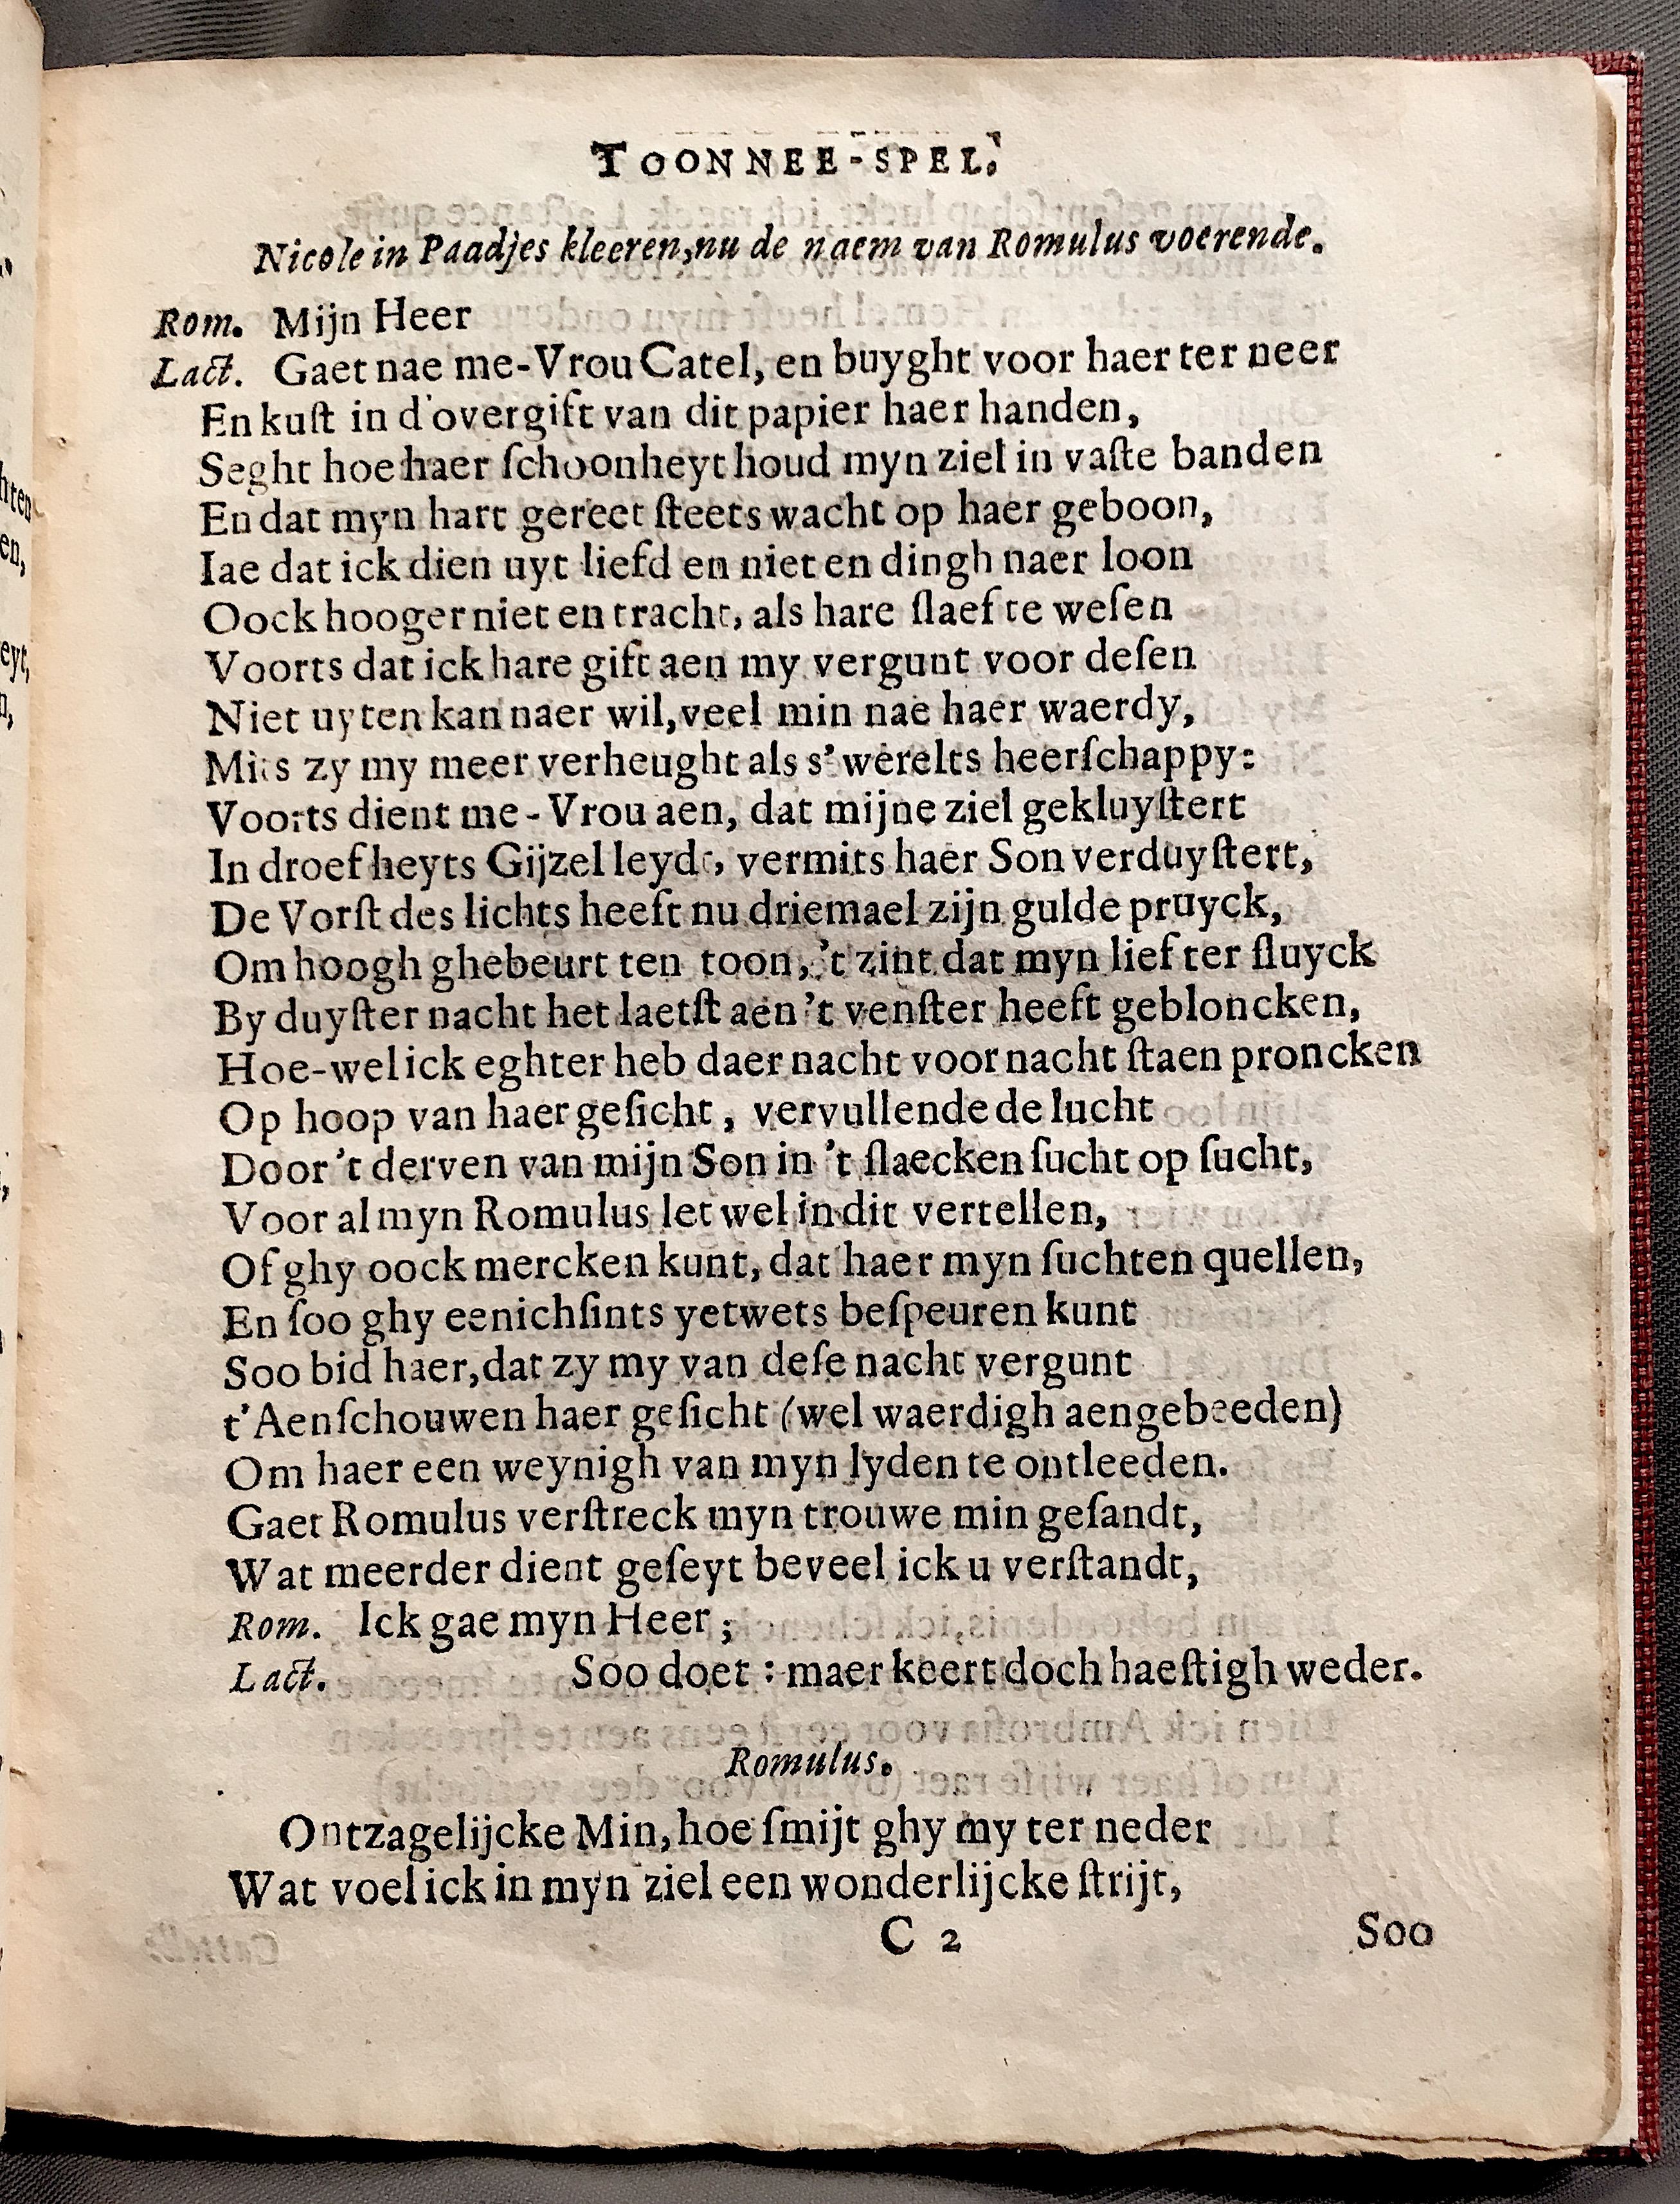 TOONNEE-SPEL.
Nicole in Paadjes kleeren, nu de naem van Romulus voerende.
Rom. Mijn Heer
Lact. Gaet nae me-Vrou Catel, en buyght voor haer ter neer
En kuſt in d'overgift van dit papier haer handen,
Seght hoe haer ſchoonheyt houd myn ziel in vaſte banden
En dat myn hart gereet ſteets wacht op haer geboon,
Iae dat ick dien uyt liefd en niet en dingh naer loon
Oock hooger niet en tracht, als hare ſlaef te weſen
Voorts dat ick hare gift aen my vergunt voor deſen
Niet uyten kan naer wil, veel min nae haer waerdy,
Mits zy my meer verheught als s'werelts heerſchappy:
Voorts dient me-Vrou aen, dat mijne ziel gekluyſtert
In droefheyts Gijzel leydt, vermits haer Son verduyſtert,
De Vorſt des lichts heeft nu driemael zijn gulde pruyck,
Om hoogh ghebeurt ten toon, 't zint dat myn lief ter ſluyck
By duyſter nacht het laetſt aen 't venſter heeft gebloncken,
Hoe-wel ick eghter heb daer nacht voor nacht ſtaen proncken
Op hoop van haer geſicht, vervullende de lucht
Door 't derven van mijn Son in 't ſlaecken ſucht op ſucht,
Voor al myn Romulus let wel in dit vertellen,
Of ghy oock mercken kunt, dat haer myn ſuchten quellen,
En ſoo ghy eenichſints yetwets beſpeuren kunt
Soo bid haer, dat zy my van deſe nacht vergunt
t'Aenſchouwen haer geſicht (wel waerdigh aengebeeden)
Om haer een weynigh van myn lyden te ontleeden.
Gaet Romulus verſtreck myn trouwe min geſandt,
Wat meerder dient geſeyt beveel ick u verſtandt,
Rom. Ick gae myn Heer;
Lact. Soo doet: maer keert doch haeſtigh weder.
Romulus.
Ontzagelijcke Min, hoe ſmijt ghy my ter neder
Wat voel ick in myn ziel een wonderlijcke ſtrijt,
C 2 Soo